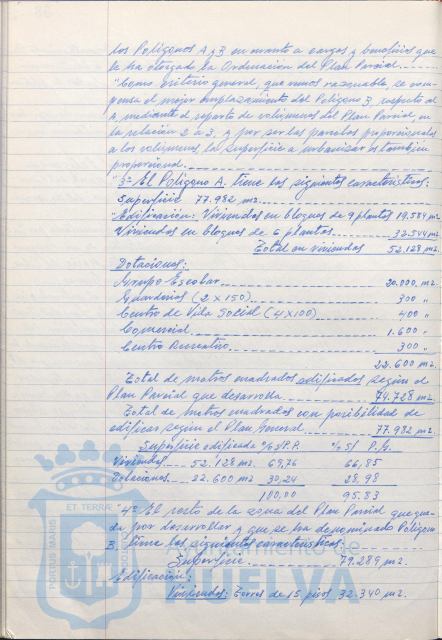 los Polígonos A y B en cuanto a cargas y beneficios que
le ha otorgado la Ordenación del Plan Parcial.
"Como criterio general, que vemos razonable, se com-
pensa el mejor emplazamiento del Polígono B, respecto al
A, mediante el reparto de volúmenes del Plan Parcial, en
la relación 2 a 3, y por ser las parcelas proporcionales
a los volúmenes la superficie a urbanizar es también
proporcional.
"3º El Polígono A. tiene las siguientes características:
Superficie 77.982 m2.
"Edificación: Viviendas en bloques de 9 plantas 19.584 m2
Viviendas en bloques de 6 plantas 32.544 m2
Total en viviendas 52.128 m2.
Dotaciones:
Grupo Escolar 20.000. m2.
Guarderías (2 x 150) 300 "
Centro de Vida Social (4 x 100) 400 "
Comercial 1.600 "
Centro Recreativo 300 "
22.600 m2.
Total de metros cuadrados edificados según el
Plan Parcial que desarrolla 74.728 m2.
Total de metros cuadrados con posibilidad de
edificar según el Plan General 77.982 m2.
Superficie edificada % s/ P.P. % s/ P.G.
Viviendas 52.128 m2. 69,76 66,85
Dotaciones 22.600 m2. 30,24 28,98
100,00 95.83
"4º El resto de la zona del Plan Parcial que que-
da por desarrollar y que se ha denominado Polígono
B, tiene las siguientes características:
Superficie 79.289 m2.
Edificación:
Viviendas: Torres de 15 pisos 32.340 m2.
ET TERRAE
PORTUS MARIS
Ayuntamiento de
HUELVA